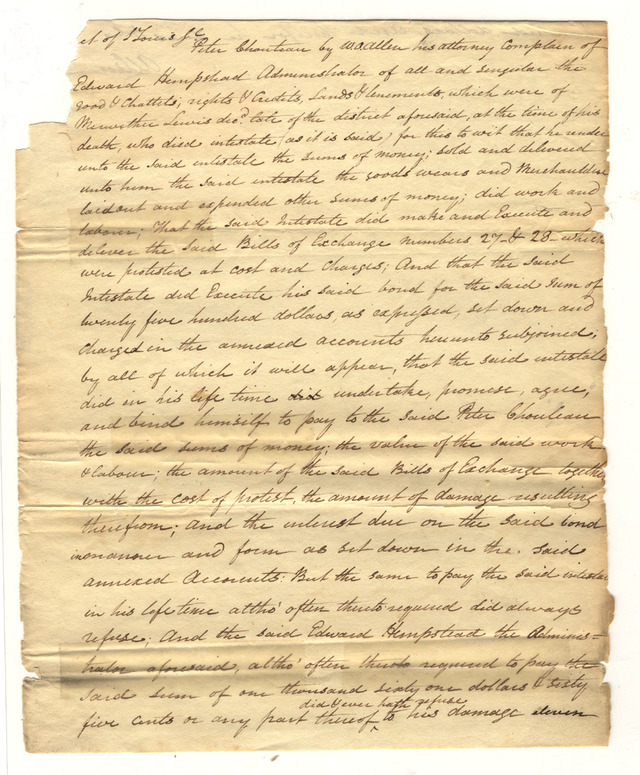 ct of St Louis Sc
Peter Chouteau by Wm Allen his attorney Complain of
Edward Hempstead Administrator of all and singular the
good & Chattels, rights & Credits, Lands & tenements, which were of
Meriwether Lewis decd. late of the district aforesaid, at the time of his
death, who died intestate (as it is said) for this to wit that he under
unto the said intestate the sums of money; sold and delivered
unto him the said intestate the goods wears and Merchandise
laid out and expended other sums of money; did work and
labour; That the said Intestate did make and Execute and
deliver the said Bills of Exchange numbers 27 & 28 which
were protested at cost and Charges; And that the said
Intestate did Execute his said bond for the said sum of
twenty five hundred dollars, as expressed, set down and
Charged in the annexed accounts hereunto subjoined;
by all of which it will appear, that the said intestate
did in his life time did undertake, promise, agree,
and bind himself to pay to the said Peter Chouteau
the said sums of money; the value of the said work
& labour; the amount of the said Bills of Exchange together
with the cost of protest, the amount of damage resulting
therefrom; and the interest due on the said bond
in manner and form as set down in the said
annexed Accounts. But the same to pay the said intestate
in his life time altho' often thereto required did always
refuse; And the said Edward Hempstead the Adminis=
trator aforesaid, altho' often thereto required to pay the
said sum of one thousand sixty one dollars & sixty
did & ever hath refuse
five cents or any part thereof ^ to his damage eleven